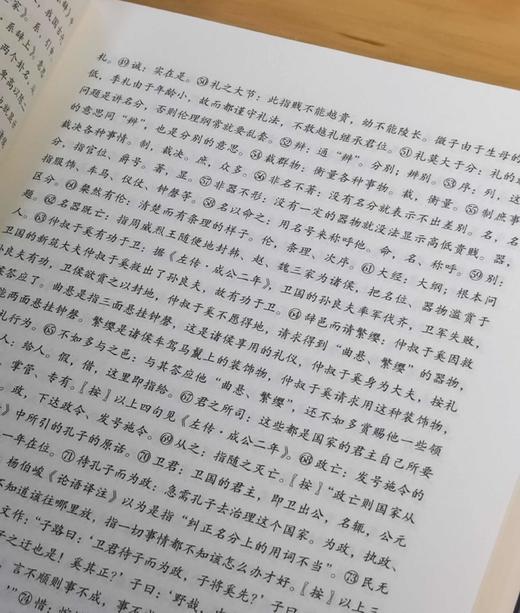 礼。㊾诚：实在是。㊿礼之大节：此指贱不能越贵，幼不能陵长。微子由于生母的
低，季札由于年龄小，故而都谨守礼法，不敢越礼继承君位。51礼莫大于分：礼的
问题是讲名分，否则伦理纲常就要乱套。52辩：通“辨”。分别；辨别。53序：列，这
的意思同“辨”，也是分别的意思。54裁群物：衡量各种事物。裁，衡量。55制庶事
裁决各种事情。制，裁决。庶，众多。56非名不著：没有名分就表示不出差别。名，名
分，指官位、爵号。著，显。57非器不形：没有一定的器物就没法显示高低贵贱。器，
指服饰、车马、仪仗、钟磬等。58名以命之：用名号来称呼他。命，名，称呼。59别：
区分。60粲然有伦：清楚而有条理的样子。伦，条理、次序。61大经：大纲；根本问
题。62名器既亡：指周威烈王随便地封韩、赵、魏三家为诸侯，把名位、器物滥赏于
人。63仲叔于奚有功于卫：据《左传·成公二年》，卫国的孙良夫率军伐齐，卫军失败，
卫国的新筑大夫仲叔于奚救出了孙良夫，故有功于卫。64辞邑而请繁缨：仲叔于奚因救
孙良夫有功，卫侯欲赏之以封地，仲叔于奚不愿得地，请求得到“曲悬、繁缨”的器物，
竟答应了。曲悬是指三面悬挂钟磬，这是诸侯享用的礼仪，仲叔于奚身为大夫，按礼
能两面悬挂钟磬。繁缨是诸侯车驾马鬣上的装饰物，仲叔于奚请求用这种装饰物，
礼行为。65不如多与之邑：与其答应他“曲悬、繁缨”，还不如多赏赐他一些领
人：给人。假，借，这里即指给。67君之所司：这些都是国家的君主自己所要
掌管、专有。〖按〗以上四句见《左传·成公二年》。68政亡：发号施令的
。政，下达政令、发号施令。69从之：指随之灭亡。〖按〗“政亡则国家从
》中所引的孔子的原话。70卫君：卫国的君主，即卫出公，名辄，公元
一年在位。71待孔子而为政：急需孔子去治理这个国家。为政，执政、
杨伯峻《论语译注》以为是指“纠正名分上的用词不当”。73民无
不知道该往哪里放，指一切事情都不知该怎么办才好。〖按〗以上
文作：“子路曰：‘卫君待子而为政，子将奚先？’子曰：
子之迂也！奚其正？’子曰：‘野哉，
言不顺则事不成，事不
74惜：